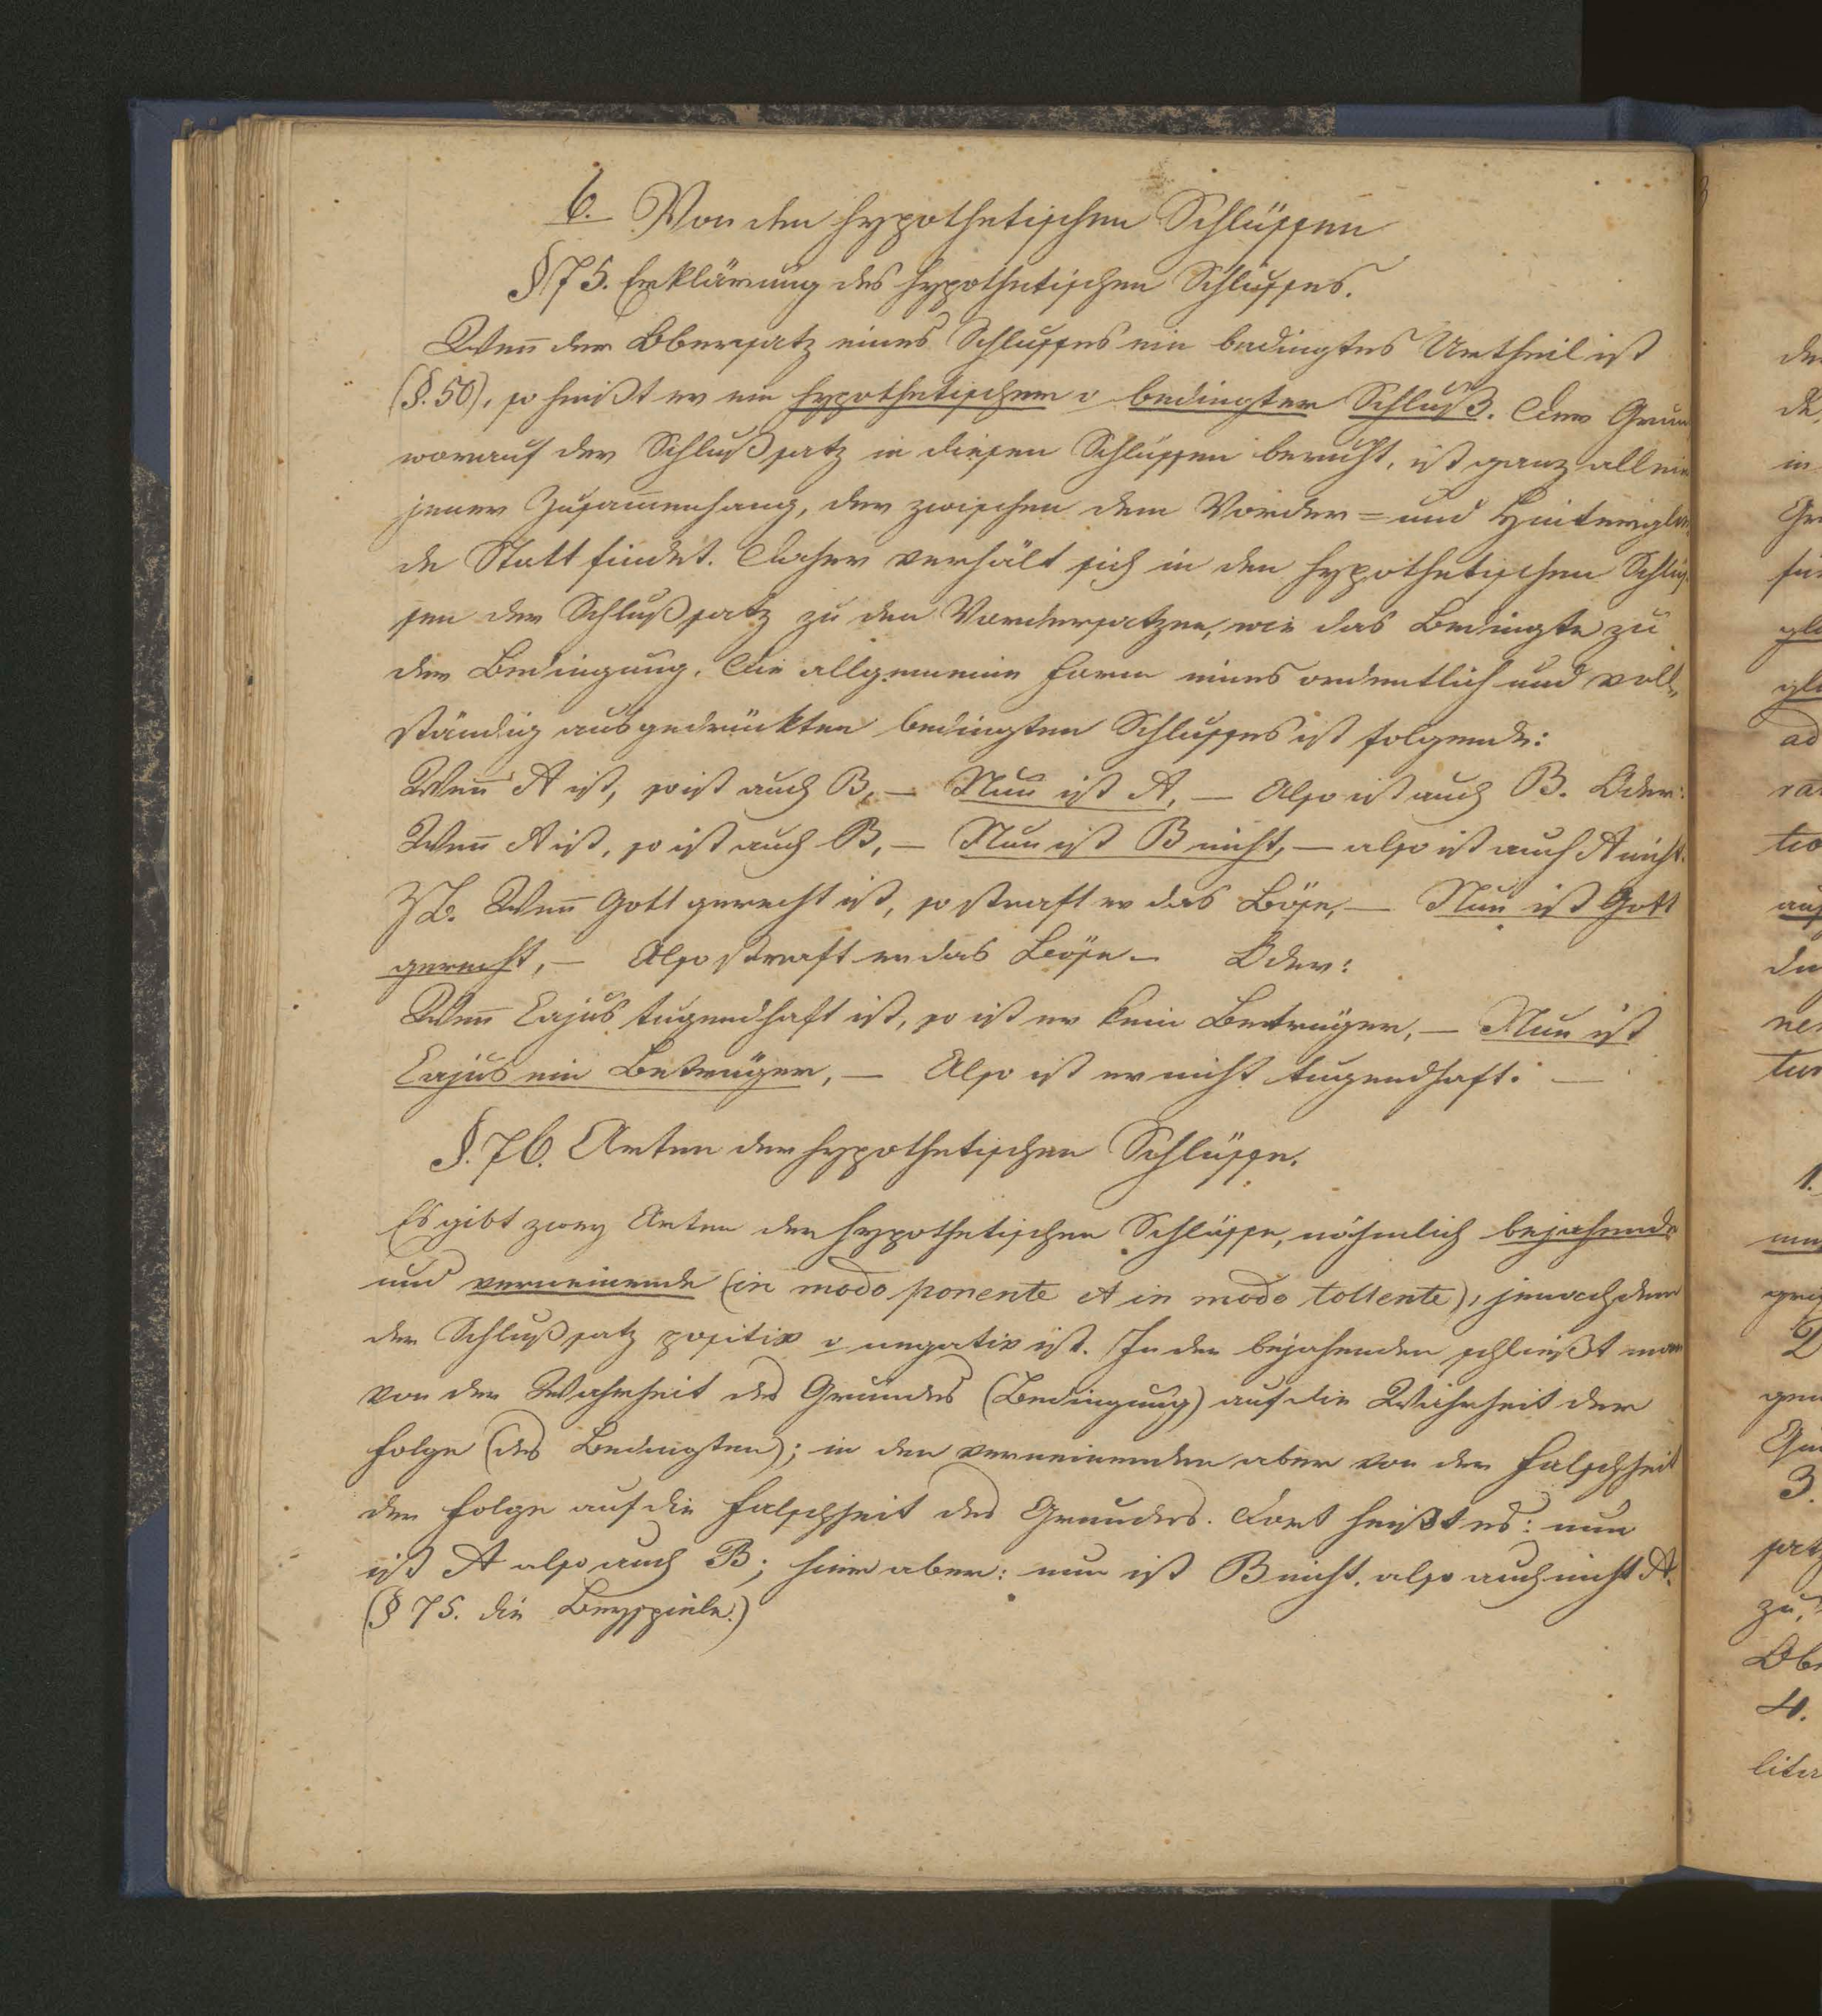 6. Von den hypothetischen Schlüssen
§ 75. Erklärung des hypothetischen Schlusses.
Weñ der Obersatz eines Schlusses ein bedingtes Urtheil ist
(§. 50), so heißt er ein hypothetischer o bedingter Schluß. Der Grun
worauf der Schlußsatz in diesen Schlüssen beruht, ist ganz allein
jener Zusam̄enhang, der zwischen dem Vorder= und Hinterglie
de Statt findet. Daher verhält sich in den hypothetischen Schlüs
sen der Schlußsatz zu den Vordersatzen, wie das Bedingte zu
der Bedingung. Die allgemeine Form eines ordentlich und voll„
ständig ausgedrückten bedingten Schlusses ist folgende:
Weñ A ist, so ist auch B, — Nun ist A, — Also ist auch B. Oder:
Weñ A ist, so ist auch B, — Nun ist B nicht, — also ist auch A nicht.
Z.B. Weñ Gott gerecht ist, so straft er das Böse, — Nun ist Gott
gerecht, — Also straft er das Böse — Oder:
Weñ Cajus tugendhaft ist, so ist er kein Betrüger, — Nun ist
Cajus ein Betrüger, — Also ist er nicht tugendhaft. —
§. 76. Arten der hypothetischen Schlüsse.
Es gibt zwey Arten der hypothetischen Schlüsse, nähmlich bejahende
und verneinende (in modo ponente et in modo tollente), jenachdem
der Schlußsatz positiv o negativ ist. In den bejahenden schließt man
von der Wahrheit des Grundes (Bedingung) auf die Wahrheit der
Folge (des Bedingten); in den verneinenden aber von der Falschheit
der Folge auf die Falschheit des Grundes. Dort heißt es: nun
ist A also auch B; hier aber: nun ist B nicht, also auch nicht A.
(§ 75. die Beyspiele.)